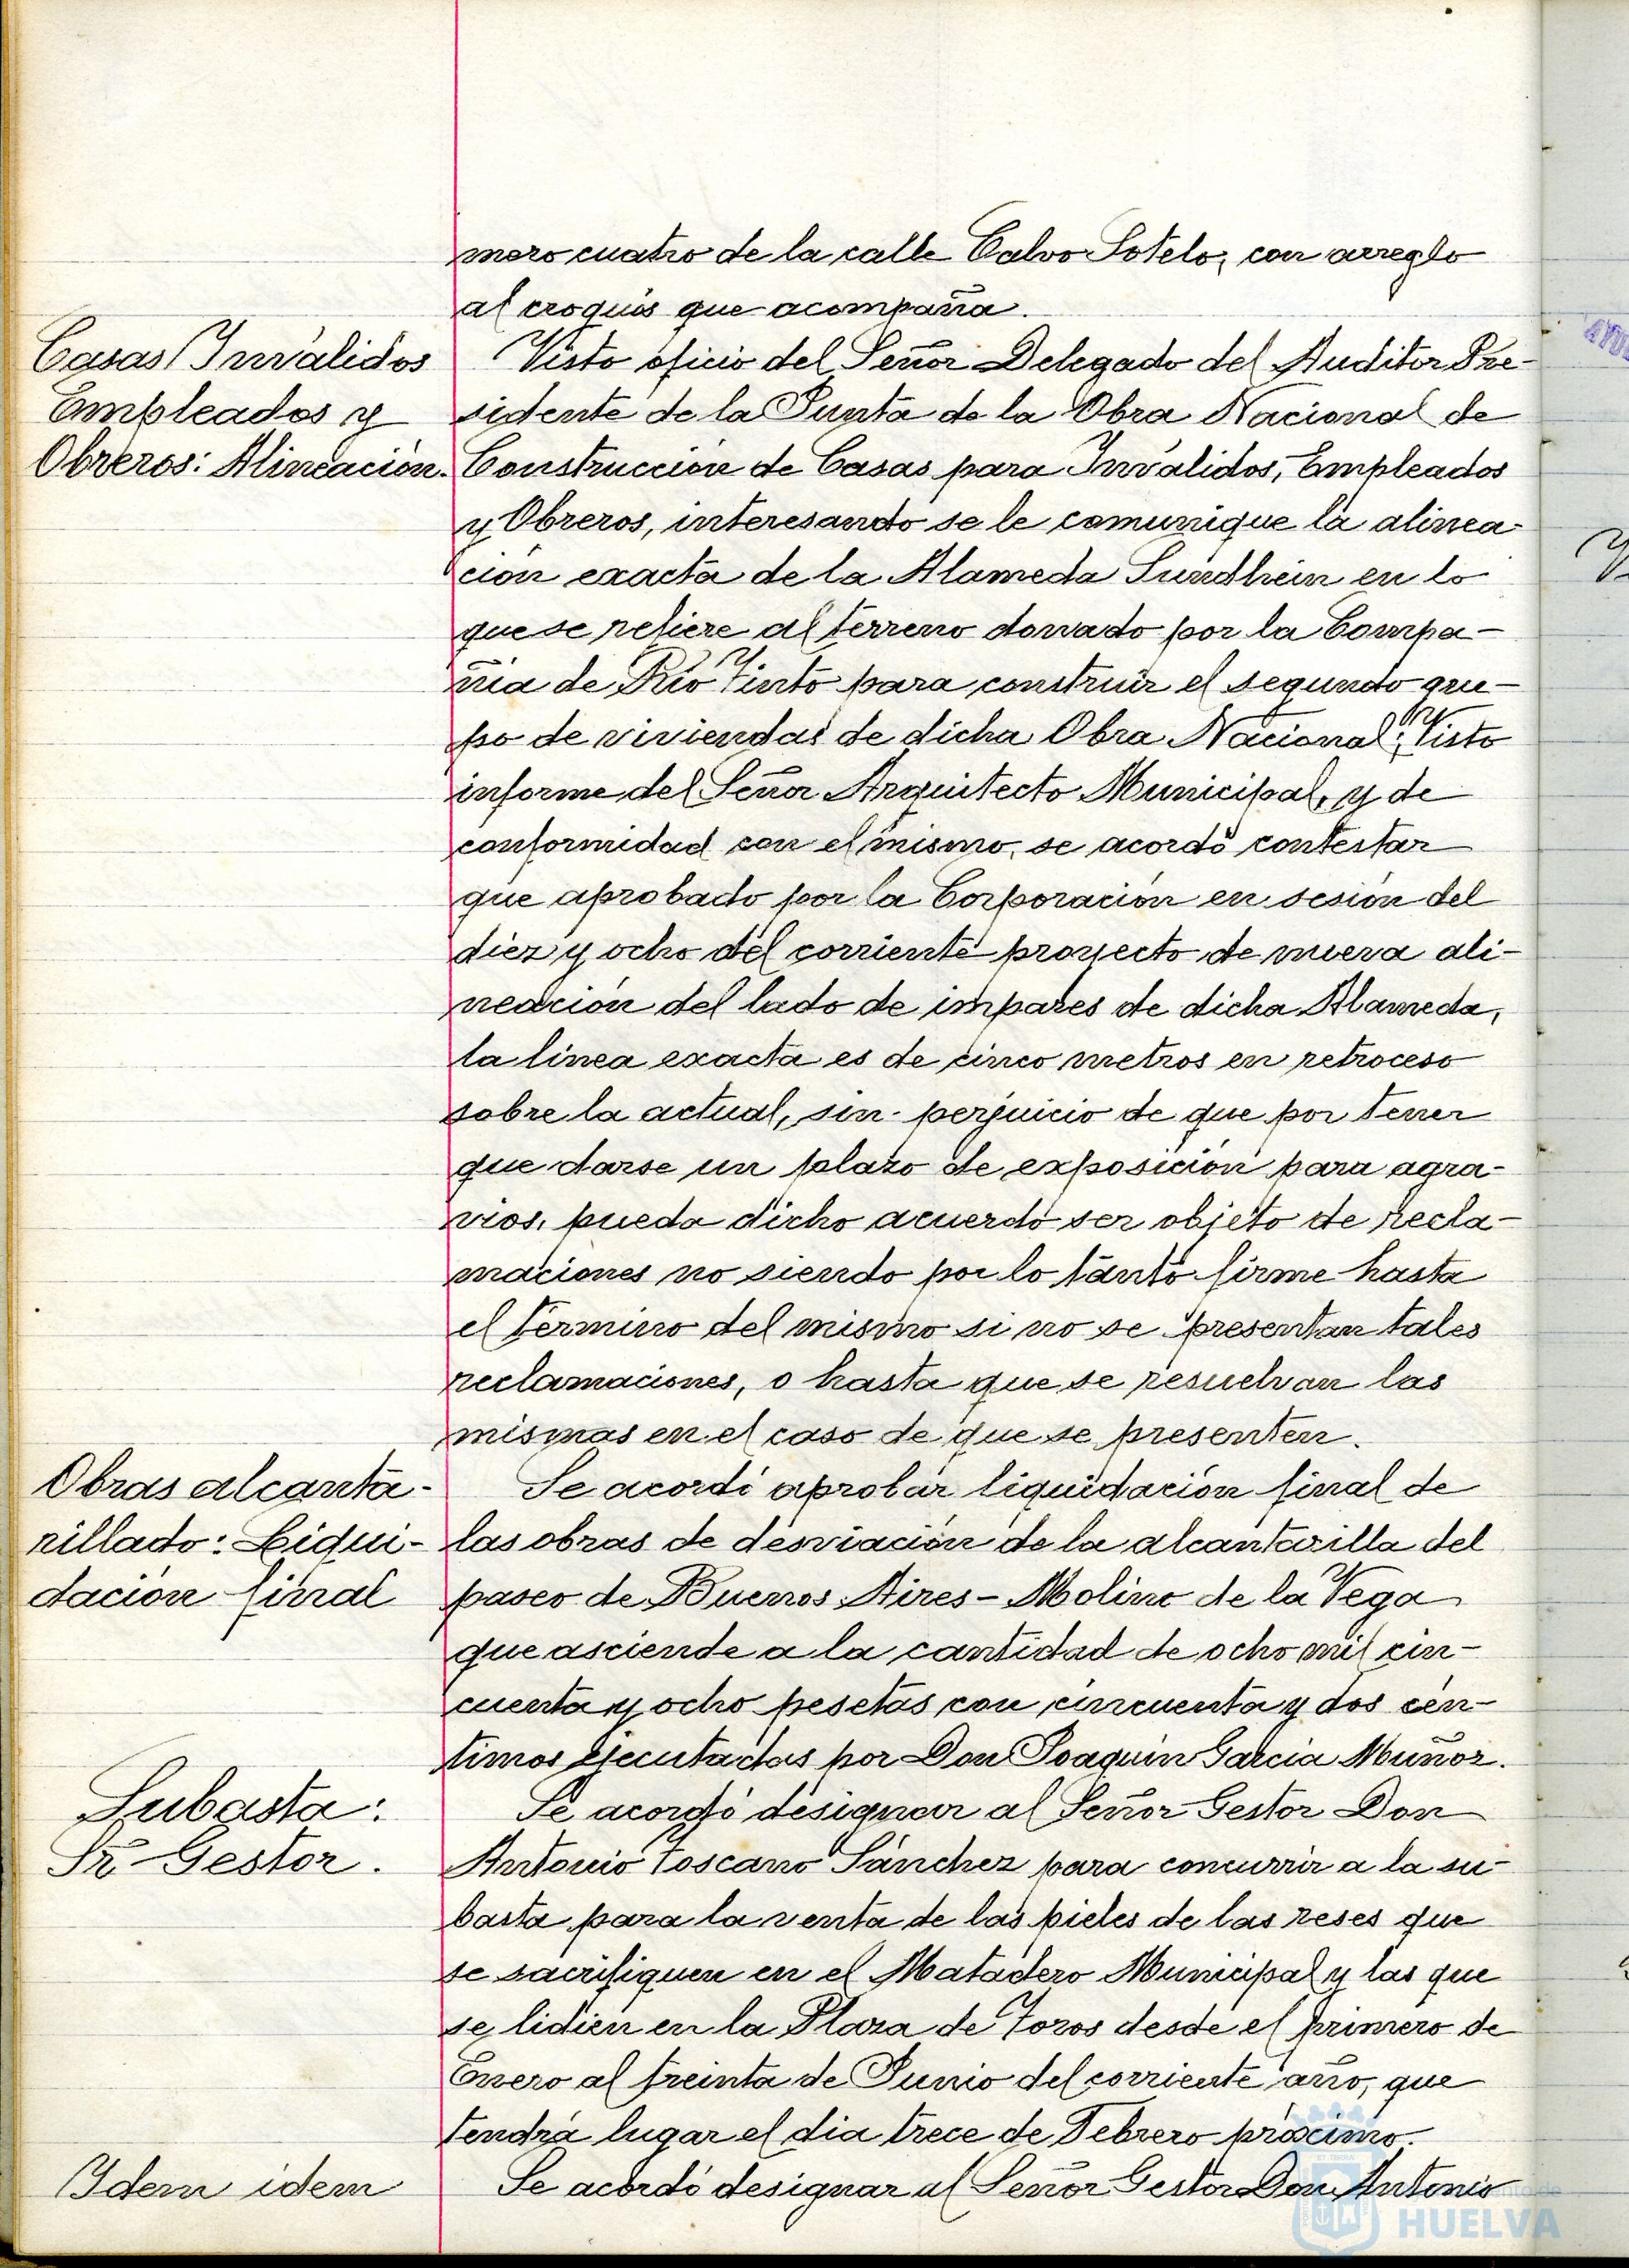 mero cuatro de la calle Calvo Sotelo, con arreglo
al croquis que acompaña.
Casas Inválidos
Empleados y
Obreros: Alineación.
Visto oficio del Señor Delegado del Auditor Pre-
sidente de la Junta de la Obra Nacional de
Construcción de Casas para Inválidos, Empleados
y Obreros, interesando se le comunique la alinea-
ción exacta de la Alameda Sundhein en lo
que se refiere al terreno donado por la Compa-
ñia de Rio Tinto para construir el segundo gru-
po de viviendas de dicha Obra Nacional; Visto
informe del Señor Arquitecto Municipal, y de
conformidad con el mismo, se acordó contestar
que aprobado por la Corporación en sesión del
diez y ocho del corriente proyecto de nueva ali-
neación del lado de impares de dicha Alameda,
la linea exacta es de cinco metros en retroceso
sobre la actual, sin perjuicio de que por tener
que darse un plazo de exposición para agra-
vios, pueda dicho acuerdo ser objeto de recla-
maciones no siendo por lo tanto firme hasta
el término del mismo si no se presentan tales
reclamaciones, o hasta que se resuelvan las
mismas en el caso de que se presenten.
Obras alcanta-
rillado: Liqui-
dación final
Se acordó aprobar liquidación final de
las obras de desviación de la alcantarilla del
paseo de Buenos Aires - Molino de la Vega
que asciende a la cantidad de ocho mil cin-
cuenta y ocho pesetas con cincuenta y dos cén-
timos ejecutadas por Don Joaquin Garcia Muñoz.
Subasta:
Sr. Gestor.
Se acordó designar al Señor Gestor Don
Antonio Toscano Sánchez para concurrir a la su-
basta para la venta de las pieles de las reses que
se sacrifiquen en el Matadero Municipal y las que
se lidien en la Plaza de Toros desde el primero de
Enero al treinta de Junio del corriente año, que
tendrá lugar el dia trece de Febrero próximo.
Idem idem
Se acordó designar al Señor Gestor Don Antonio
HUELVA